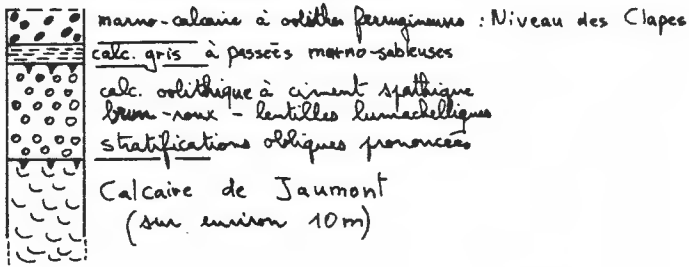 marno-calcaire à oolithes ferrugineuses : Niveau des Clapes
calc. gris à passées marno-sableuses
calc. oolithique à ciment spathique
brun-roux - lentilles lumachelliques
stratifications obliques prononcées
Calcaire de Jaumont
(sur environ 10 m)